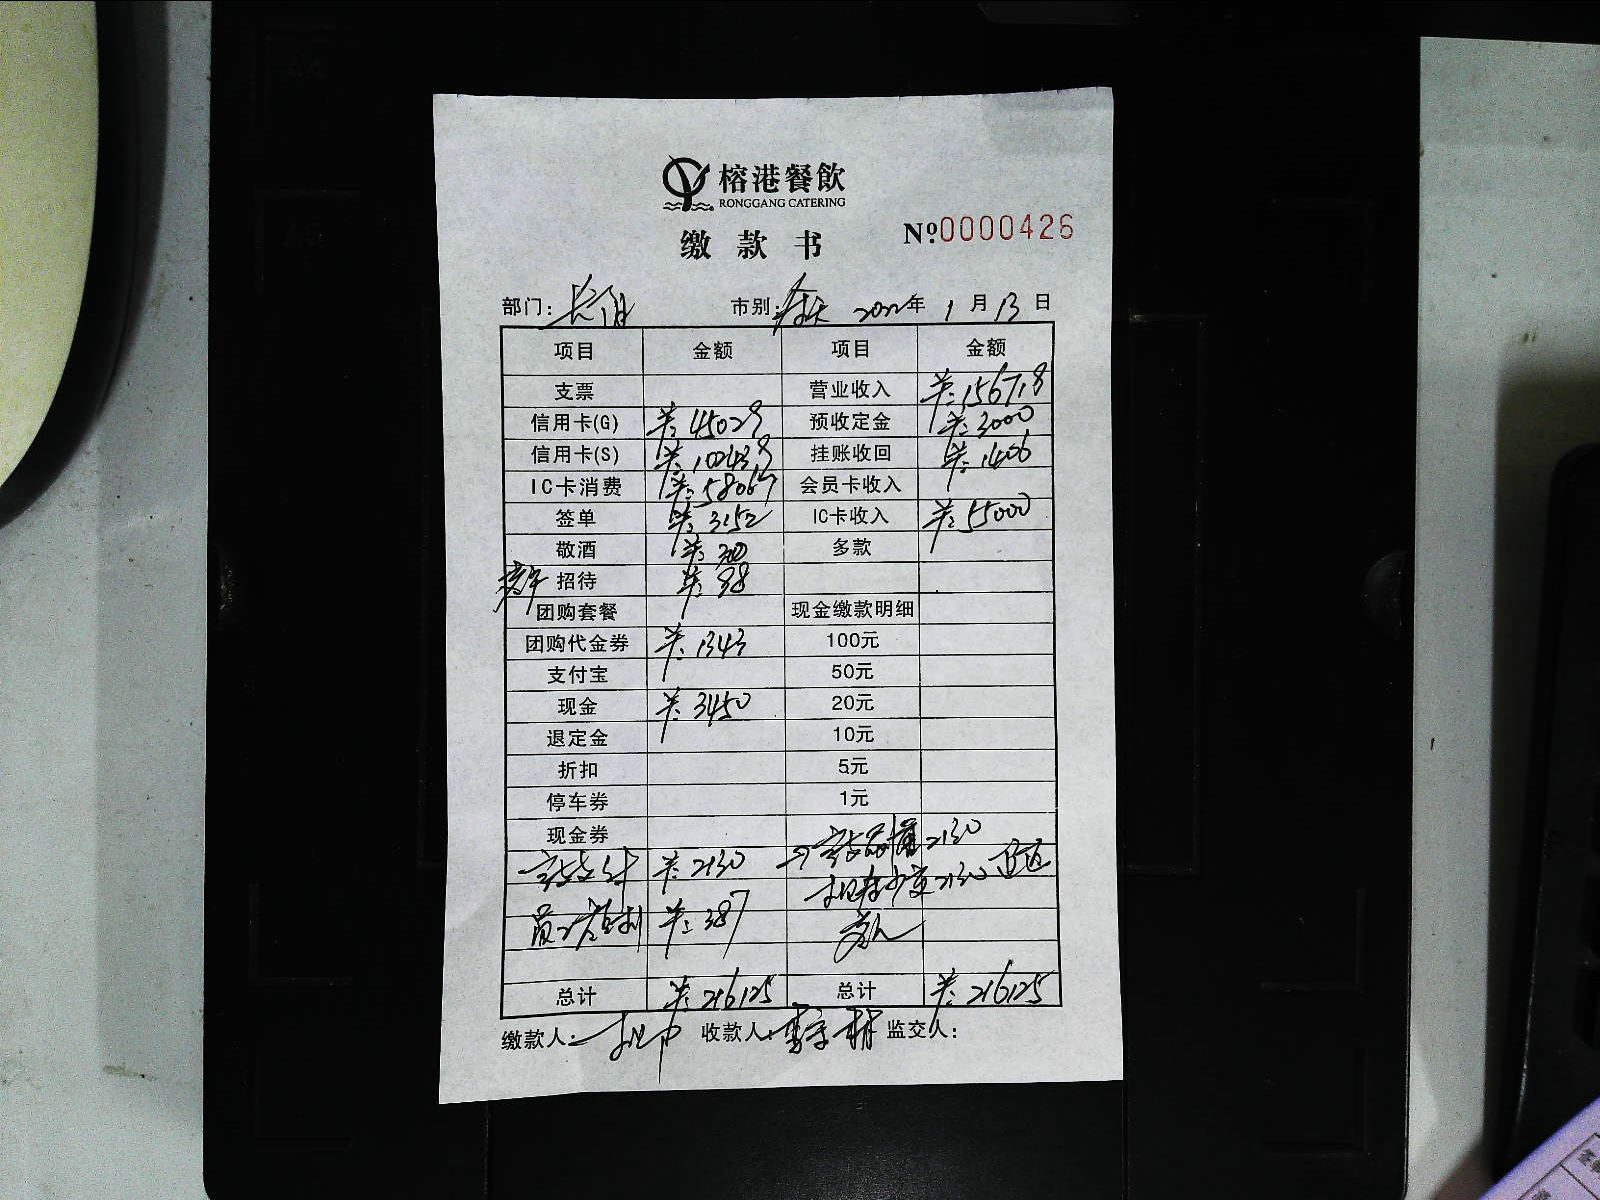 榕港餐飲
RONGGANG CATERING
缴款书 Nº0000426
部门: 市别: 2022年 1月13日
项目 金额 项目 金额
支票 营业收入 ¥:156719
信用卡(G) ¥:45029 预收定金 ¥:3000
信用卡(S) 挂账收回 ¥:1406
IC卡消费 ¥:58067 会员卡收入
签单 ¥:3152 IC卡收入 ¥:55000
敬酒 ¥:300 多款
招待 ¥:98
团购套餐 现金缴款明细
团购代金券 ¥:1343 100元
支付宝 50元
现金 ¥:3450 20元
退定金 10元
折扣 5元
停车券 1元
现金券
¥:2130 2130
2130
员工 ¥:387
总计 ¥:216125 总计 ¥:216125
缴款人: 收款人: 监交人: